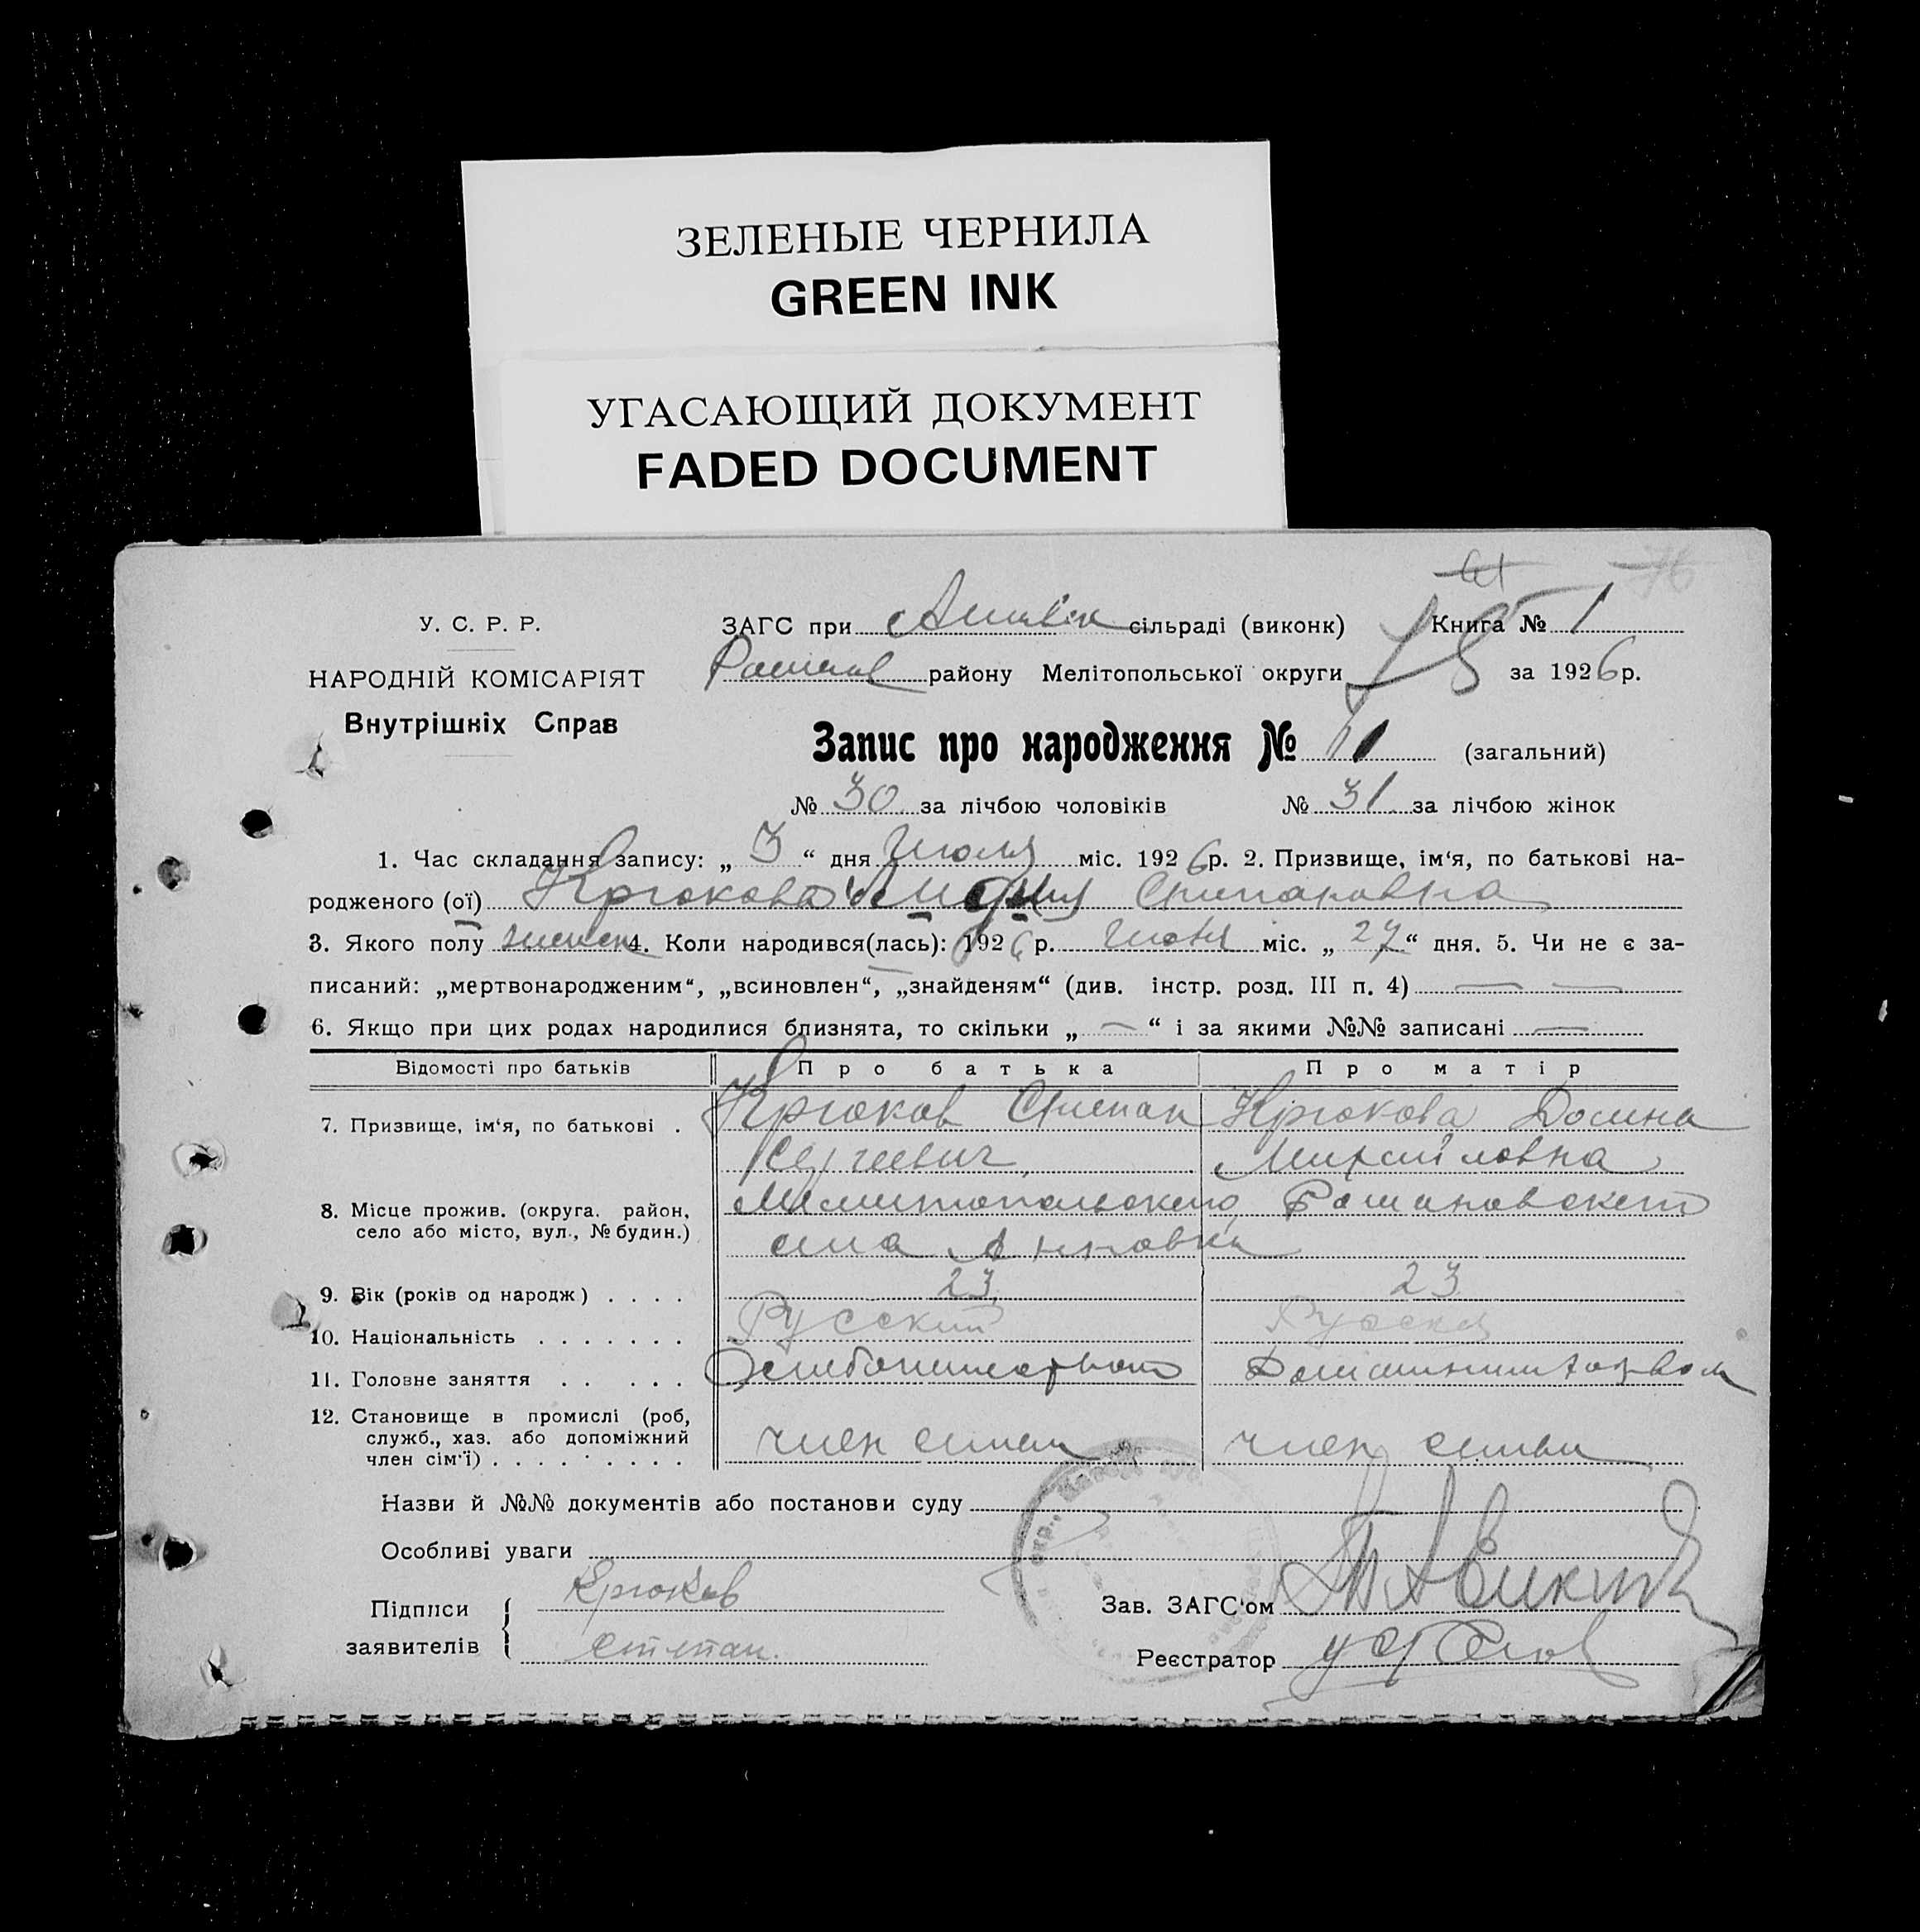 ЗЕЛЕНЫЕ ЧЕРНИЛА
GREEN INK
УГАСАЮЩИЙ ДОКУМЕНТ
FADED DOCUMENT
76
У. С. Р. Р.
ЗАГС при сільраді (виконк) Книга № 1
НАРОДНІЙ КОМІСАРІЯТ
району Мелітопольської округи за 1926 р.
Внутрішніх Справ
Запис про народження № (загальний)
№ 30 за лічбою чоловіків № 31 за лічбою жінок
1. Час складання запису: „ 3 “ дня Июля міс. 1926 р. 2. Призвище, ім‘я, по батькові на-
родженого (ої) Крюкова Лидия Степановна
3. Якого полу женск 4. Коли народився(лась): 1926 р. Июня міс. „ 27 “ дня. 5. Чи не є за-
писаний: „мертвонародженим“, „всиновлен“, „знайденям“ (див. інстр. розд. III п. 4) — —
6. Якщо при цих родах народилися близнята, то скільки „ — “ і за якими №№ записані —
Відомості про батьків Про батька Про матір
7. Призвище, ім‘я, по батькові . Крюков Степан Крюкова Домна
Сергеевич Михайловна
8. Місце прожив. (округа. район, Мелитопольского Романовского
село або місто, вул., № будин.) села Анновка
9. Вік (років од народж) . . . . 23 23
10. Національність . . . . . . . Русский Русская
11. Головне заняття . . . . . Хлебопашество
12. Становище в промислі (роб,
служб., хаз. або допоміжний член семьи член семьи
член сім‘ї) . . . . . . . . .
Назви й №№ документів або постанови суду
Особливі уваги
Підписи Крюков
Зав. ЗАГС‘ом
заявителів степан.
Реєстратор